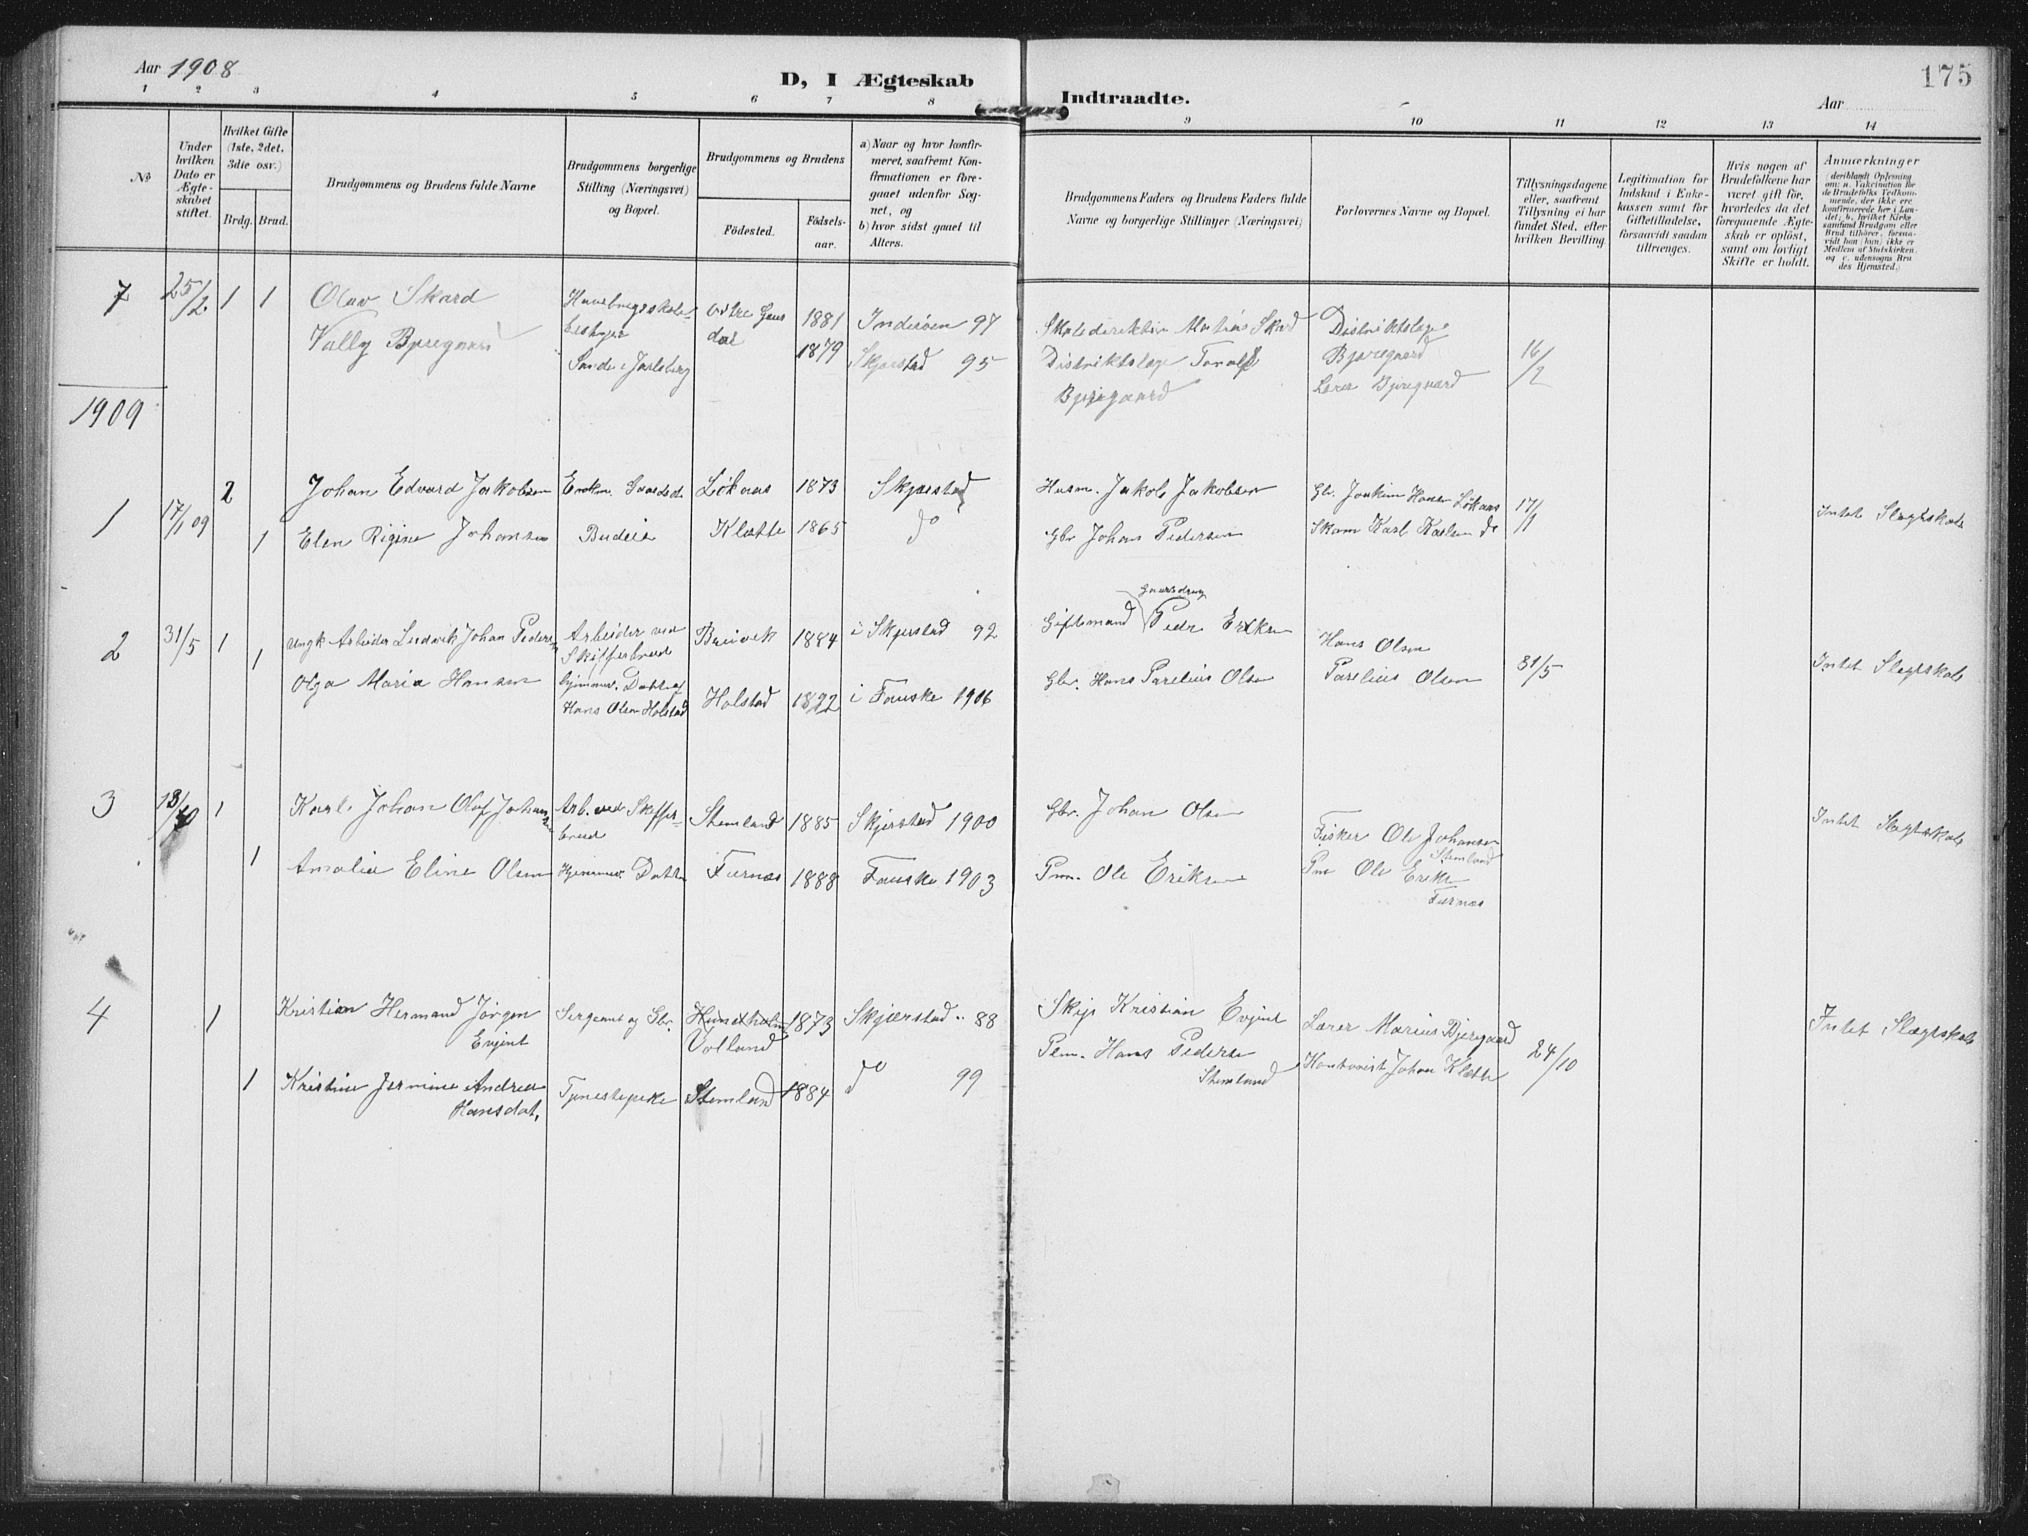 Aar 1908
D, I Ægteskab
Indtraadte.
Aar
175
1 2 3 4 5 6 7 8
9 10 11 12 13 14
No
Under hvilken Dato er Ægteskabet stiftet.
Hvilket Gifte (1ste, 2det, 3die osv.)
Brdg. Brud.
Brudgommens og Brudens fulde Navne
Brudgommens borgerlige Stilling (Næringsvei) og Bopæl.
Brudgommens og Brudens
Födested.
Födselsaar.
a) Naar og hvor konfirmeret, saafremt Konfirmationen er foregaaet udenfor Sognet, og
b) hvor sidst gaaet til Alters.
Brudgommens Faders og Brudens Faders fulde Navne og borgerlige Stillinger (Næringsvei)
Forlovernes Navne og Bopæl.
Tillysningsdagene eller, saafremt Tillysning ei har fundet Sted, efter hvilken Bevilling.
Legitimation for Indskud i Enkekassen samt for Giftetilladelse, forsaavidt saadan tiltrænges.
Hvis nogen af Brudefolkene har været gift för, hvorledes da det foregaaende Ægteskab er oplöst, samt om lovligt Skifte er holdt.
Anmærkninger
7 25/2 1 1 Olav Skard
Vally Bjøregaard
Sande i Jarlsberg
1881
1879
Inderøen 97
Skjerstad 95
Skoledirektør Matias Skard
Distriktslæge
Bjøregaard
Distriktslæge
Bjøregaard
Lærer Bjøregaard
16/2
1909
1 17/1 09 2 Johan Edvard Jakobsen
Løknes 1873 Skjerstad
Husm. Jakob Jakobsen
Gbr. Joakim Hansen Løknes
17/1
Intet Slægtskab
1 Elen Regine Johansen
Budeie Klætte 1865 do
Gbr Johans Pedersen
Karl Karlsen do
2 31/5 1 Ungk Arbeider Ludvik Johan Pedersen
Arbeider ved Skifferbrud
Breivik 1884 i Skjerstad 92
Giftemand Gaardbrug Peder
Hans Olsen
31/5
Intet Slægtskab
1 Olga Maria Hansen
Hjemmev. Datter af Hans Olsen Holstad
Holstad 1892 i Fauske 1906
Gbr. Hans Parelius Olsen
Parelius Olsen
3 1 Karl Johan Olaf Johansen
Arb. ved Skifferbrud
Stemland 1885 Skjerstad 1900
Gbr. Johan Olsen
Fisker Ole Johansen
Stemland
Intet Slægtskab
1 Amalia Eline Olsen
Hjemmev. Datter Furnes 1888 Fauske 1903
Pm. Ole Eriksen
Pm Ole Eriks
Furnes
4 1 Kristian Hermand Jörgen
Evjent
Sergeant og Gbr. Hundholm
1873 Skjærstad " 88
Skip Kristian Evjent
Lærer Marius Bjøregaard
24/10
Intet Slægtskab
1 Kristine Jermine Andrea
Hansdat.
Tjenestepike Stemland 1884 do 99
Pm. Hans Pedersen
Stemland
Johan Klætte